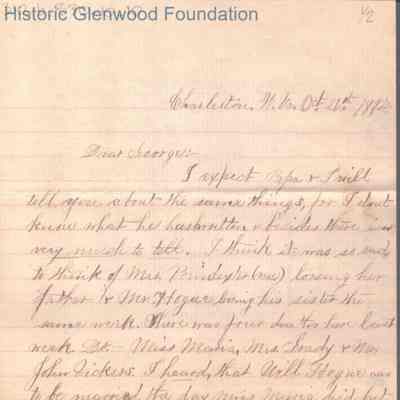 Historic Glenwood Foundation
1/2
Charleston, W. Va. Oct. 20th 189
Dear George:-
I expect Papa & I will
tell you about the same things, for I don't
know what he has written & besides there is
very much to tell. I think it was so sad
to think of Mrs. Poindexter (nee) loosing her
father & Mr. Hogue losing his sister the
same week. There was four deaths here last
week. Dr. - Miss Maria, Mrs. Grady & Mr.
John Dickens. I heard, that Will Hogue was
to be married the day Miss Maria died but